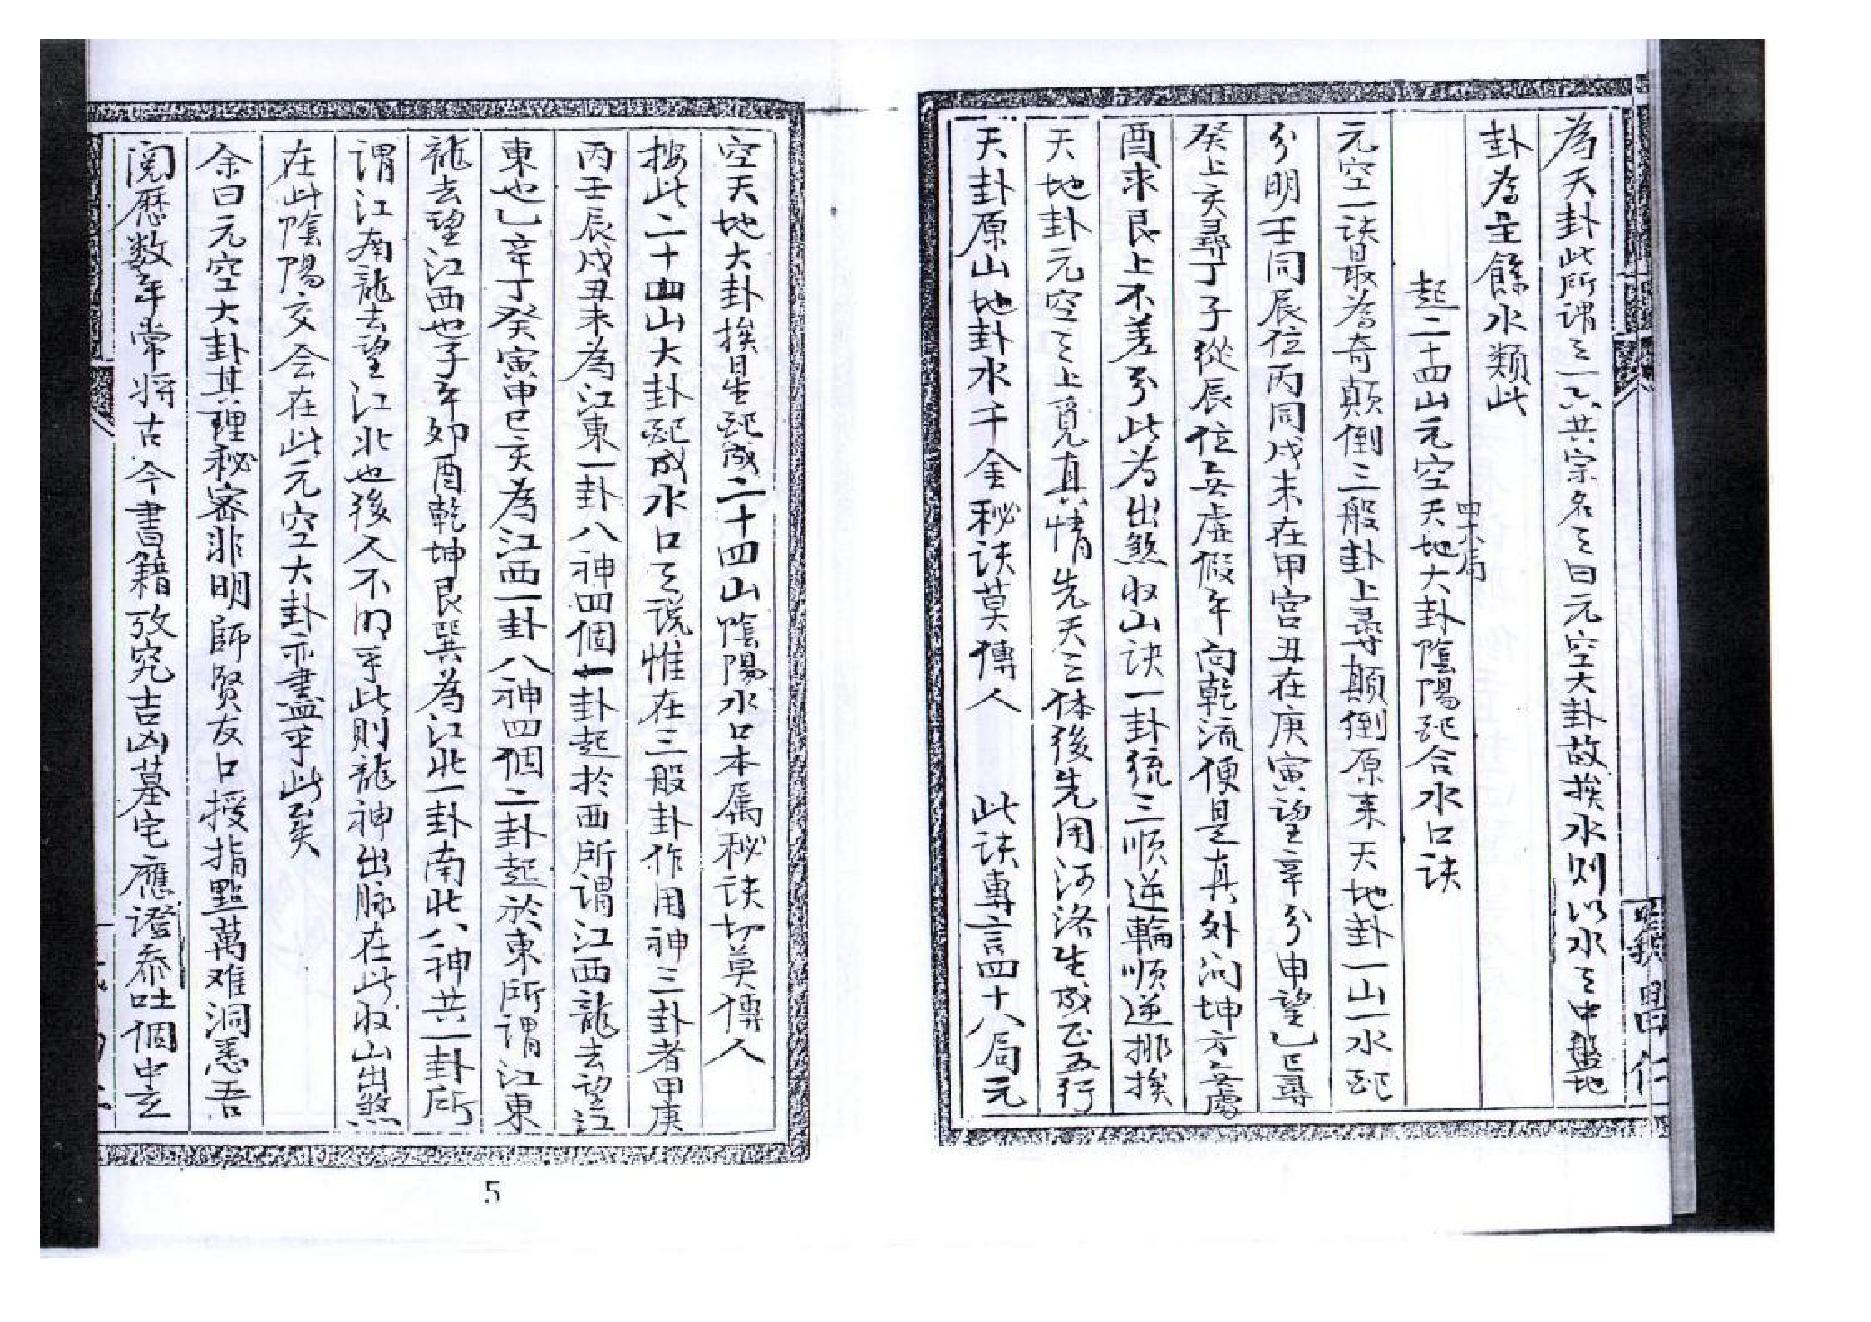 為天卦此所谓之一六共宗名之曰元空大卦故挨水则以水之中盤地
卦為主餘水類此
起二十四山元空天地大卦陰陽配合水口诀
四大局
元空一诀最為奇顛倒三般卦上尋顛倒原来天地卦一山一水配
分明壬同辰位丙同戌未在甲宫丑在庚寅望辛分申望乙巳尋
癸上亥尋丁子從辰位無虚假午向乾流便是真外问坤方無處
酉求艮上不差分此为出煞收山诀一卦统三順逆輪順逆挪挨
天地卦元空之上覓真情先天之体後先用河洛生成正五行
天卦原山地卦水千金秘诀莫傳人 此诀專言四十八局元
空天地大卦挨星配成二十四山陰陽水口本属秘诀切莫傳人
按此二十四山大卦配成水口之说惟在三般卦作用神三卦者甲庚
丙壬辰戌丑未為江東一卦八神四個一卦起於西所谓江西龍去望江
東也乙辛丁癸寅申巳亥為江西一卦八神四個二卦起於東所谓江東
龍去望江西也子午卯酉乾坤艮巽為江北一卦南北八神共一卦所
谓江南龍去望江北也後人不明乎此則龍神出脉在此收山出煞
在此陰陽交会在此元空大卦亦盡乎此矣
余曰元空大卦其理秘密非明師賢友口授指點萬难洞悉吾
閲歷数年常将古今書籍攷究吉凶墓宅應證泰吐個中玄
5